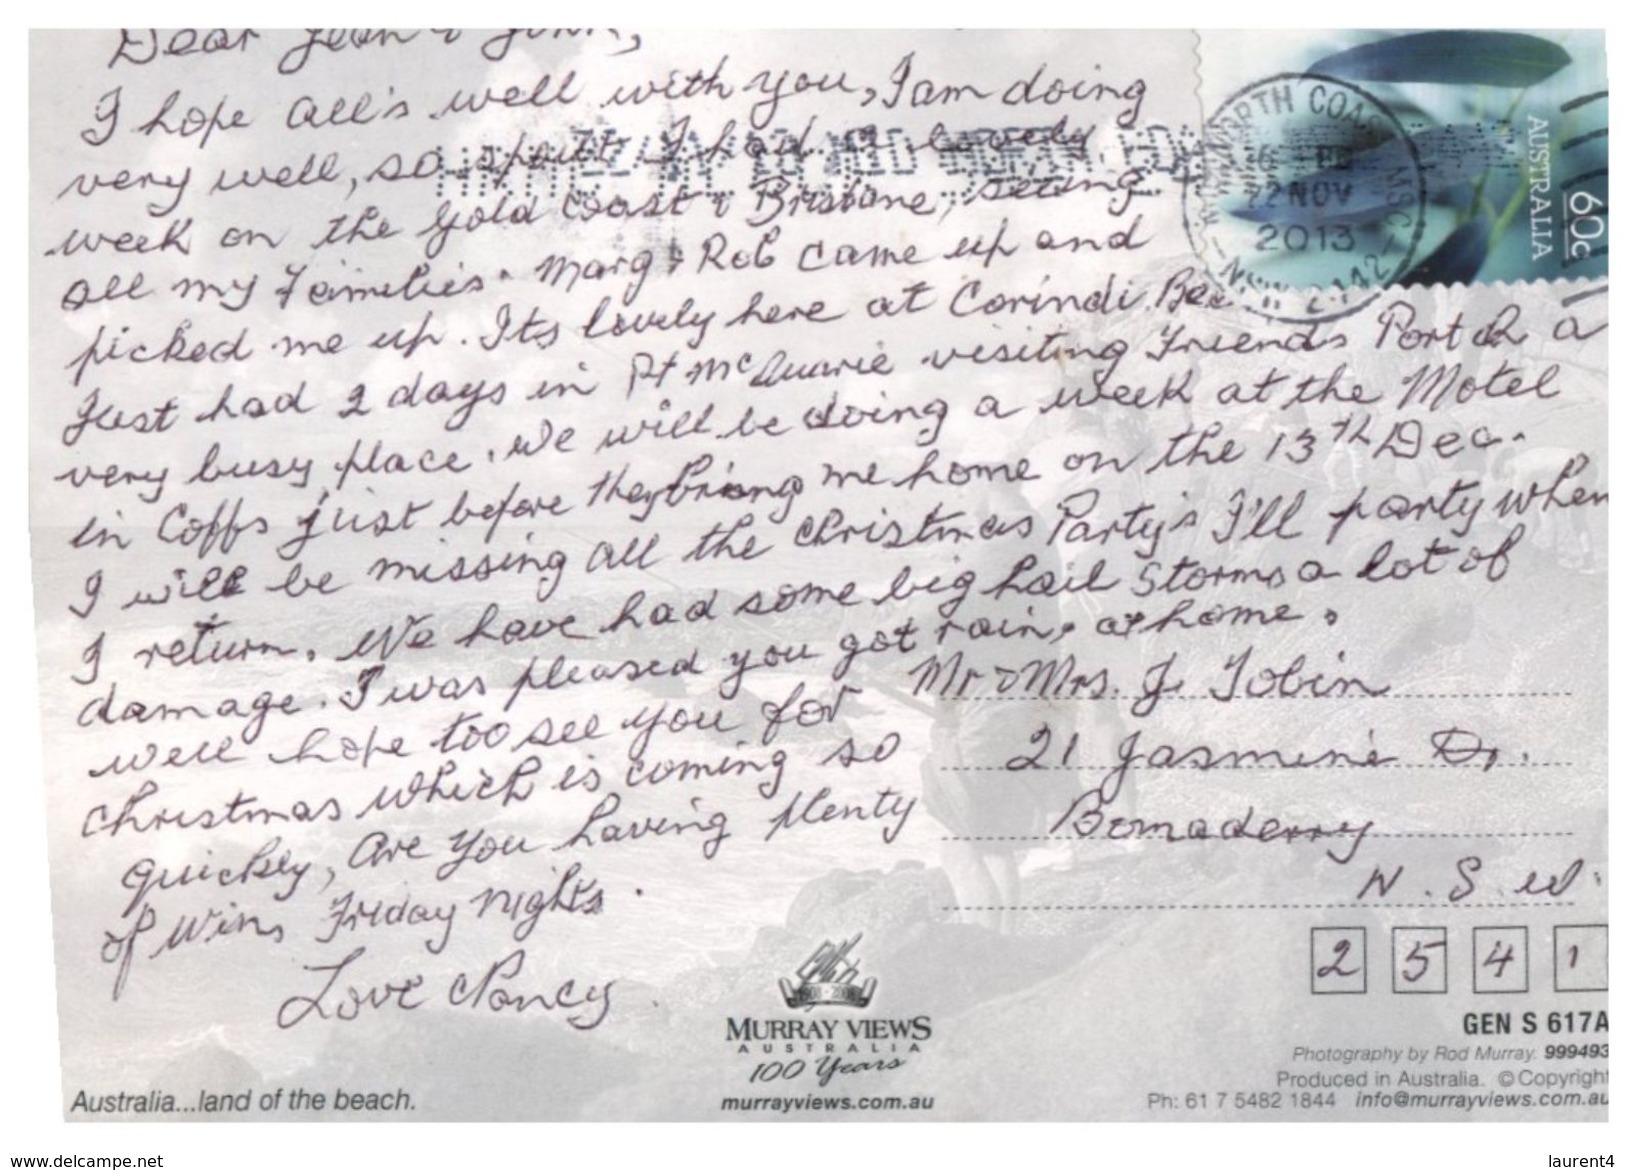 Dear Jean & John,
I hope all's well with you, I am doing
very well, so spoilt I had a lovely
week on the Gold Coast & Brisbane, seeing
all my Families. Marg & Rob came up and
picked me up. Its lovely here at Corindi
Just had 2 days in Pt McQuarie visiting Friends Port is a
very busy place. We will be doing a week at the Motel
in Coffs just before they bring me home on the 13th Dec.
I will be missing all the Christmas Party's I'll party when
I return. We have had some big hail storms a lot of
damage. I was pleased you got rain, at home.
well hope too see you for
Christmas which is coming so
quickly, Are you having plenty
of wins Friday nights.
Love Nancy.
AUSTRALIA
60c
NORTH COAST
22 NOV
2013
Mr & Mrs. J. Tobin
21 Jasmine Dr.
Bomaderry
N. S. W.
2 5 4 1
MURRAY VIEWS
AUSTRALIA
100 Years
murrayviews.com.au
GEN S 617A
Photography by Rod Murray. 999493
Produced in Australia. © Copyright
Ph: 61 7 5482 1844 info@murrayviews.com.au
Australia...land of the beach.
www.delcampe.net
laurent4